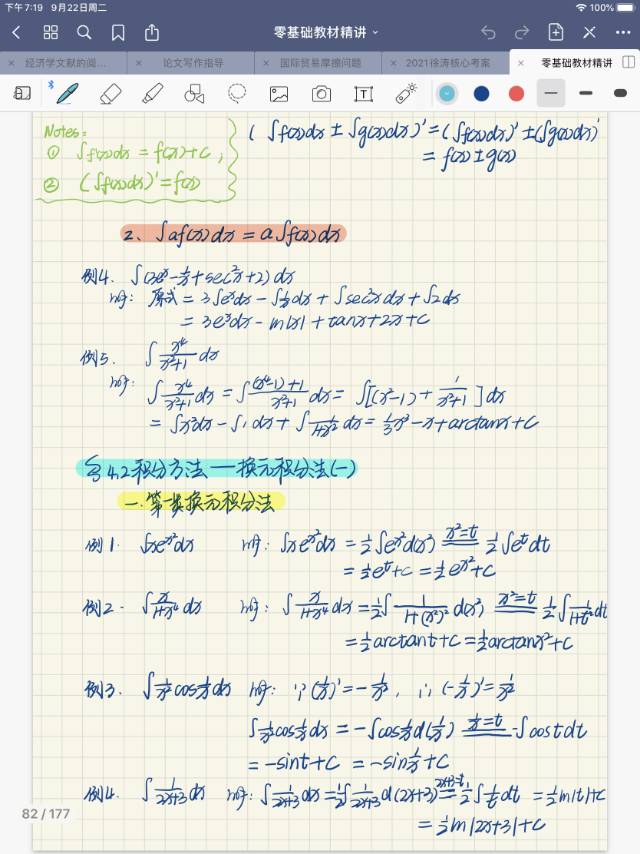 下午7:19 9月22日周二
100%
零基础教材精讲
经济学文献的阅...
论文写作指导
国际贸易摩擦问题
2021徐涛核心考案
零基础教材精讲
Notes:
① ∫f(x)dx = f(x)+C,
② (∫f(x)dx)' = f(x)
(∫f(x)dx ± ∫g(x)dx)' = (∫f(x)dx)' ± (∫g(x)dx)'
= f(x) ± g(x)
2、∫af(x)dx = a∫f(x)dx
例4. ∫(3eˣ - 1/x + sec²x + 2)dx
解: 原式 = 3∫eˣdx - ∫1/x dx + ∫sec²x dx + ∫2dx
= 3eˣdx - ln|x| + tanx + 2x + C
例5. ∫ x⁴/(x²+1) dx
解:
∫ x⁴/(x²+1) dx = ∫ ((x⁴-1)+1)/(x²+1) dx = ∫[(x²-1) + 1/(x²+1)]dx
= ∫x²dx - ∫1dx + ∫ 1/(1+x²) dx = 1/3 x³ - x + arctanx + C
§4.2 积分方法 — 换元积分法(一)
一.第一类换元积分法
例1. ∫xe^(x²)dx 解: ∫xe^(x²)dx = 1/2 ∫e^(x²)d(x²) x²=t 1/2 ∫eᵗdt
= 1/2 eᵗ + C = 1/2 e^(x²) + C
例2. ∫ x/(1+x⁴) dx 解: ∫ x/(1+x⁴) dx = 1/2 ∫ 1/(1+(x²)²) d(x²) x²=t 1/2 ∫ 1/(1+t²) dt
= 1/2 arctant + C = 1/2 arctanx² + C
例3. ∫ 1/x² cos 1/x dx 解: ∵(1/x)' = -1/x², ∴(-1/x)' = 1/x²
∫ 1/x² cos 1/x dx = -∫cos 1/x d(1/x) 1/x=t -∫costdt
= -sint + C = -sin 1/x + C
例4. ∫ 1/(2x+3) dx 解: ∫ 1/(2x+3) dx = 1/2 ∫ 1/(2x+3) d(2x+3) 2x+3=t 1/2 ∫ 1/t dt = 1/2 ln|t| + C
= 1/2 ln|2x+3| + C
82 / 177